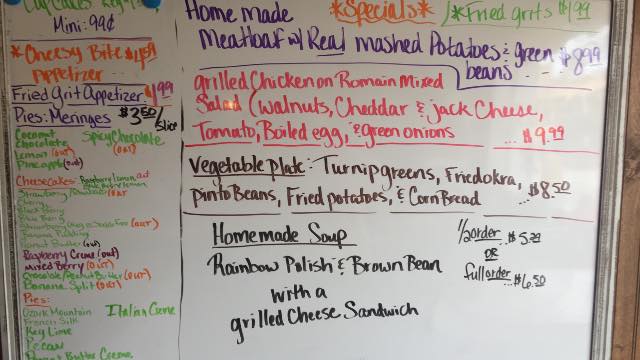 Cupcakes Reg
Mini-99¢
*Cheesy Bite $4.59
Appetizer
Fried Grit Appetizer $1.99
Pies: Meringues $3.50/slice
Coconut
Chocolate
Lemon (out)
Pineapple (out)
Spicy Chocolate
(out)
Cheesecakes: Raspberry lemon out
Strawberry
(out)
(out)
Peanut Butter (out)
Raspberry Creme (out)
Mixed Berry (out)
Chocolate/Peanut Butter (out)
Banana Split (out)
Pies:
Ozark Mountain
French Silk
Key Lime
Pecan
Peanut Butter Creme
Italian Creme
*Specials* /*Fried grits $1.99
Home made
Meatloaf w/ Real mashed Potatoes & green beans $8.99
grilled Chicken on Romain Mixed
Salad (walnuts, Cheddar & Jack Cheese,
Tomato, Boiled egg, & green onions
... $9.99
Vegetable plate: Turnip greens, Fried okra,
pinto Beans, Fried potatoes, & Corn Bread
... $8.50
Homemade Soup
Rainbow Polish & Brown Bean
with a
grilled Cheese Sandwich
1/2 order .. $5.29
OR
full order ... $6.50